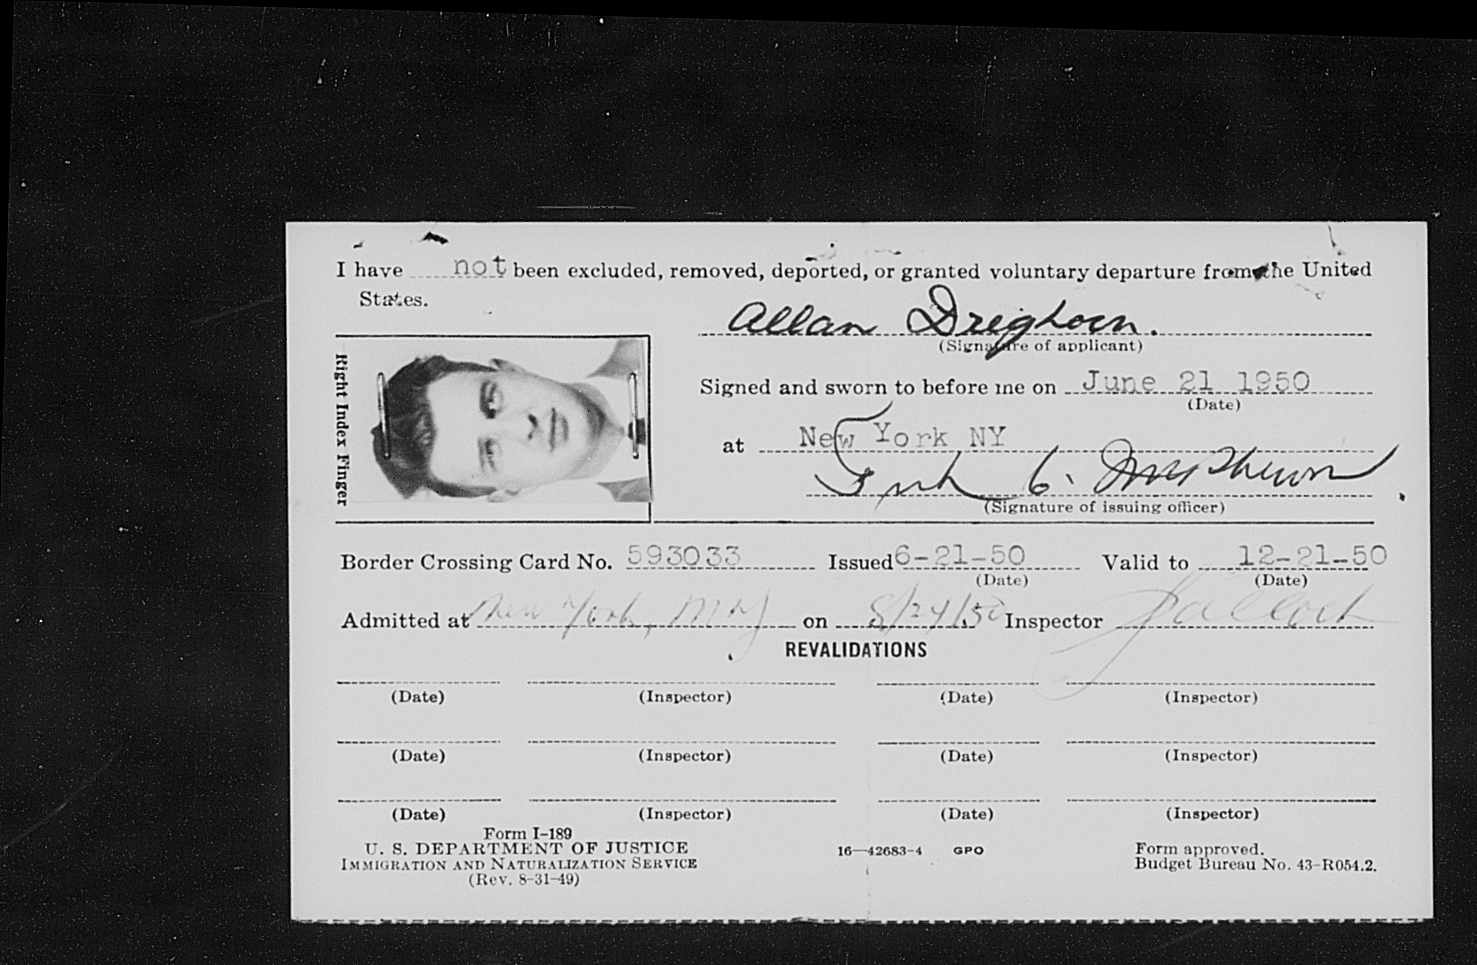 I have not been excluded, removed, deported, or granted voluntary departure from the United
States.
Allan Dreghorn.
(Signature of applicant)
Right Index Finger
Signed and sworn to before me on June 21 1950
(Date)
at New York NY
(Signature of issuing officer)
Border Crossing Card No. 593033 Issued 6-21-50 Valid to 12-21-50
(Date) (Date)
Admitted at New York, N.Y. on 8/24/50 Inspector
REVALIDATIONS
(Date) (Inspector) (Date) (Inspector)
(Date) (Inspector) (Date) (Inspector)
(Date) (Inspector) (Date) (Inspector)
Form I-189
U. S. DEPARTMENT OF JUSTICE
IMMIGRATION AND NATURALIZATION SERVICE
(Rev. 8-31-49)
16—42683-4 GPO
Form approved.
Budget Bureau No. 43-R054.2.